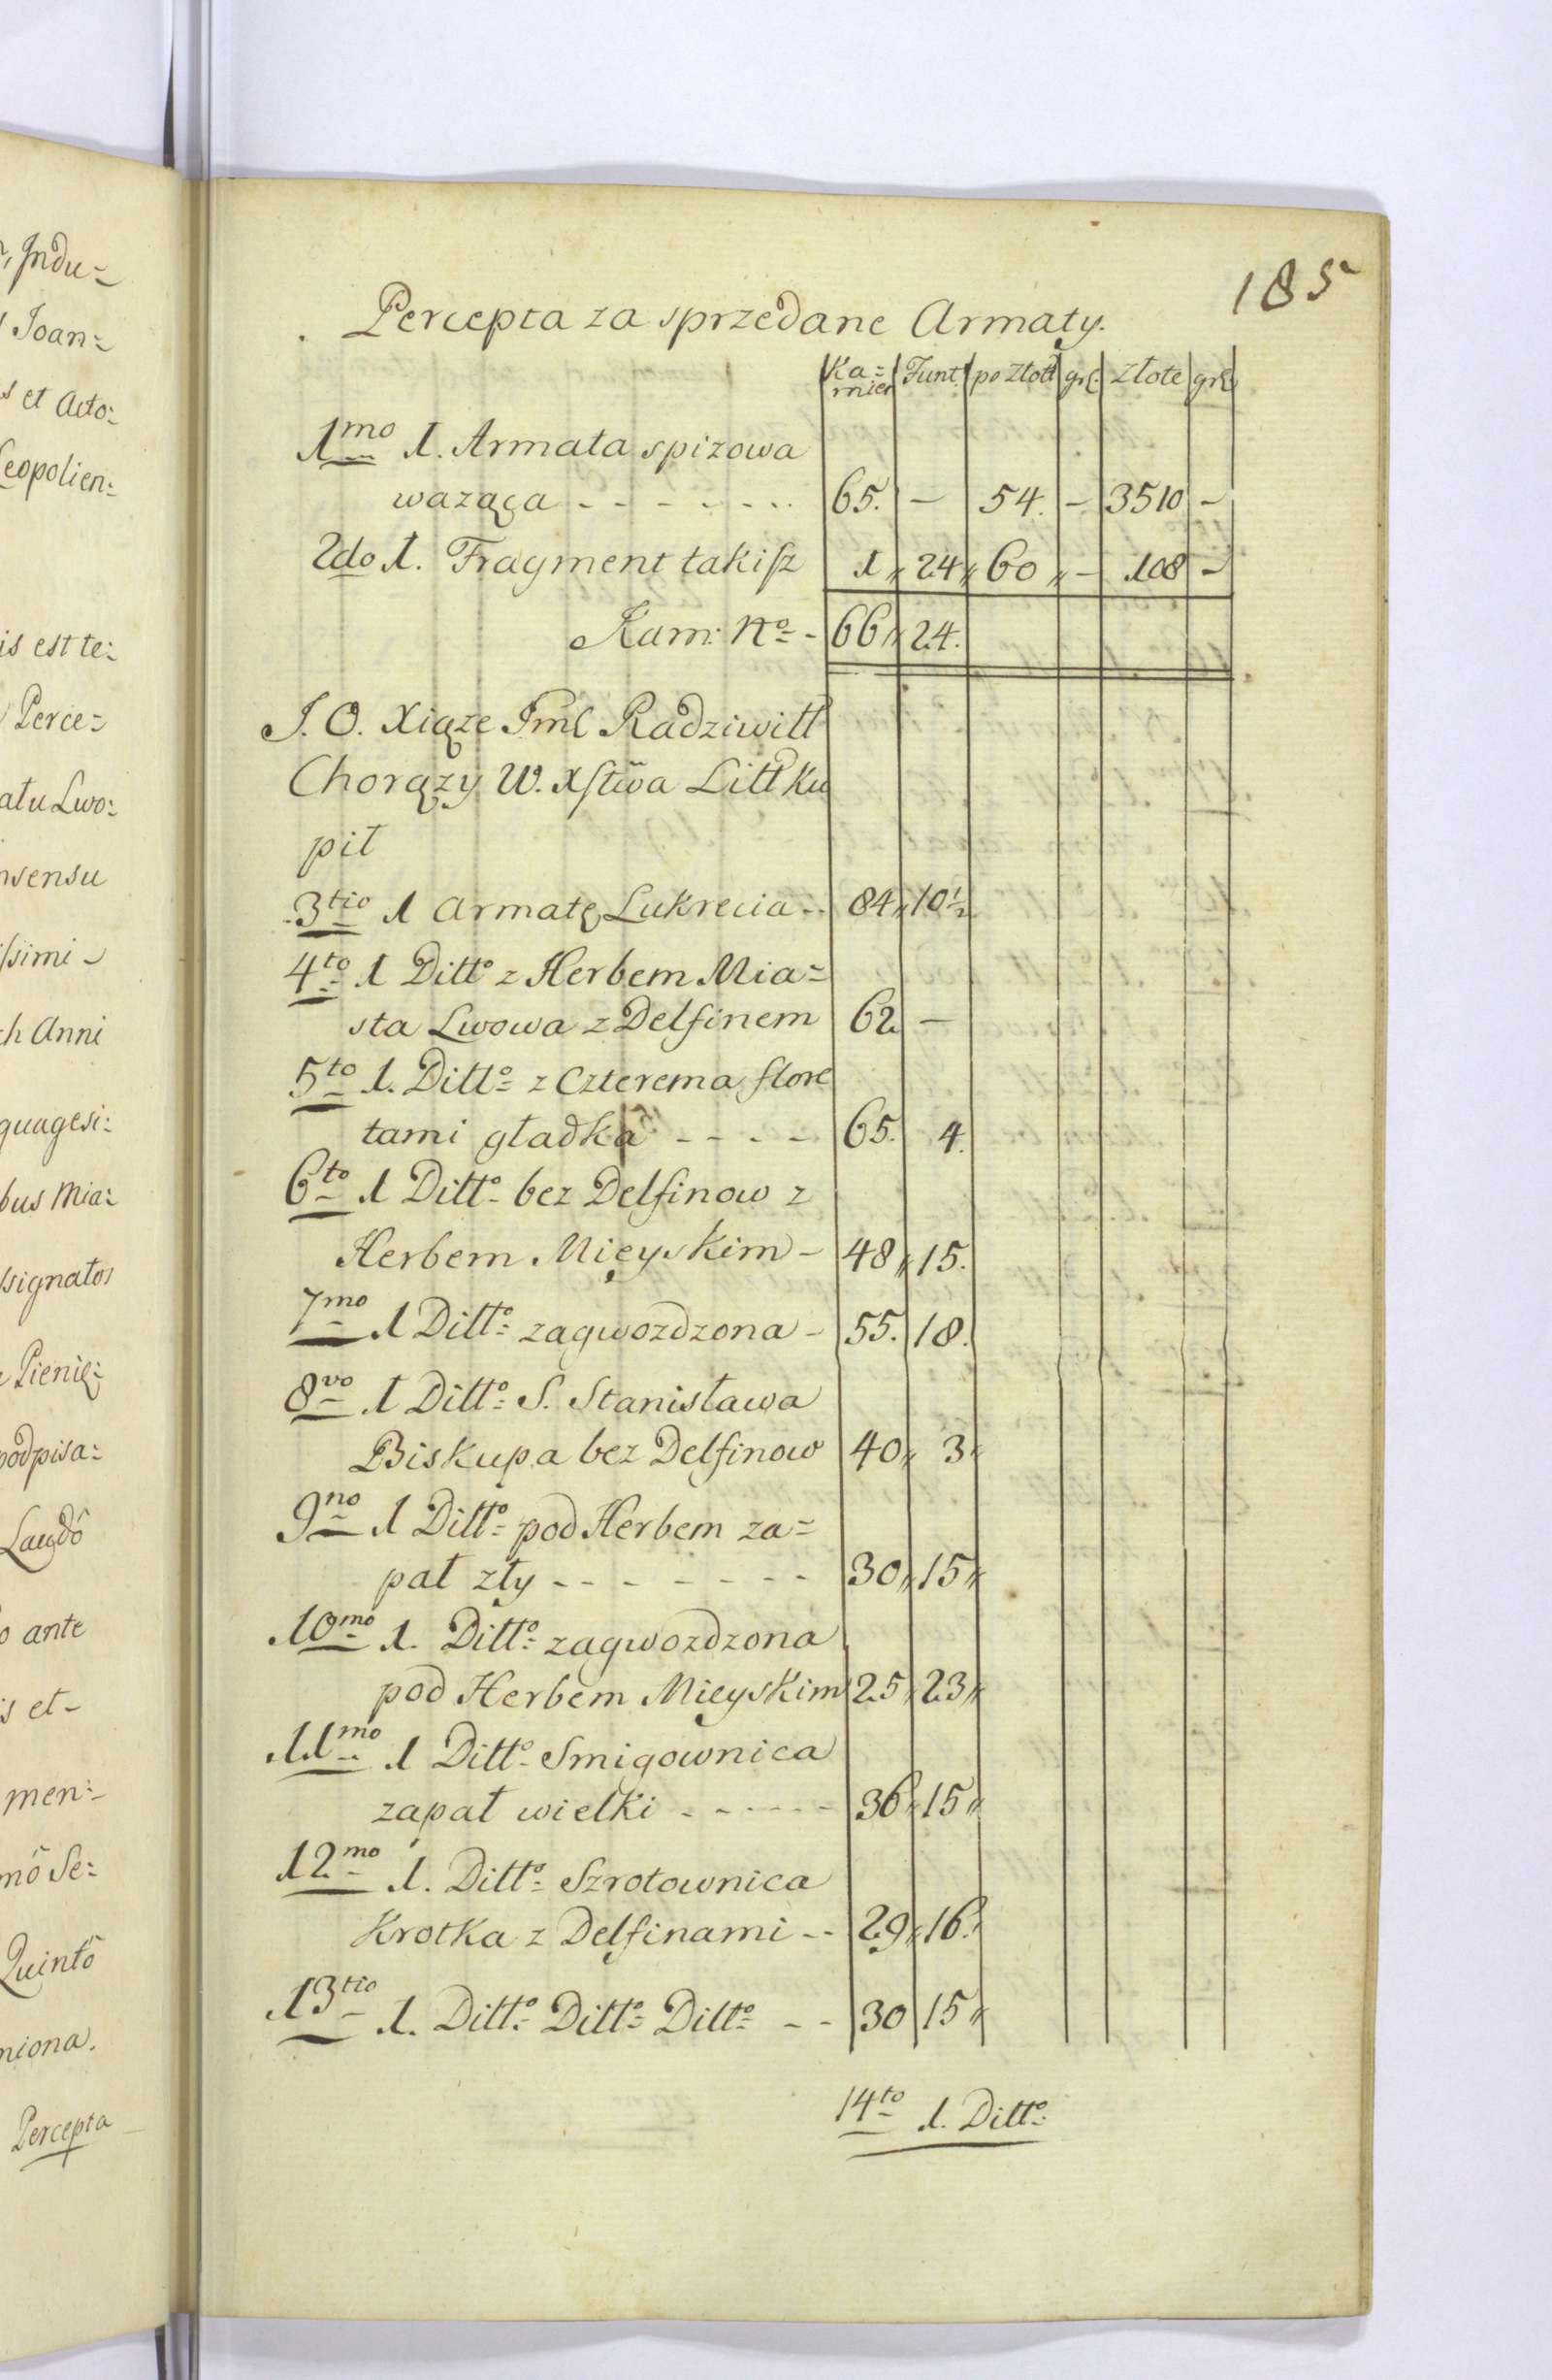 , Indu=
Joan=
s et Acto:
Leopolien:
is est te:
Perce=
atu Lwo:
nsensu
ſsimi -
ch Anni
quagesi:
bus Mia:
ſsignatos
Pienię:
podpisa=
Laudô
o ante
is et -
men:-
mô Se:
Quintô
niona.
Percepta
185
Percepta za sprzedane Armaty.
Ka= Funt. po złott grſ. złote grſ.
mien
1mo 1. Armata spizowa
ważąca - - - - - - - 65. - 54. - 3510 -
2do 1. Fragment takiſz 1 „ 24 „ 60 „ - 108 -
Kam: No - 66 „ 24.
J. O. Xiąze Jmć Radziwiłł
Chorązy W. Xſtwa Litt Ku
pił
3tio 1 Armatę Lukrecia - - 84 „ 10½
4to 1 Ditto z Herbem Mia=
sta Lwowa z Delfinem 62 -
5to 1. Ditto z Czterema flore
tami gładka - - - - 65. 4.
6to 1 Ditto bez Delfinow z
Herbem Mieyskim - 48 „ 15.
7mo 1 Ditto zagwozdzona - 55. 18.
8vo 1 Ditto S. Stanisława
Biskupa bez Delfinow 40 „ 3 „
9no 1 Ditto pod Herbem za=
pał zły - - - - - - - 30 „ 15 „
10mo 1. Ditto zagwozdzona
pod Herbem Mieyskim 25 „ 23 „
11mo 1 Ditto Smigownica
zapał wielki - - - - - - 36 „ 15 „
12mo 1. Ditto Szrotownica
Krotka z Delfinami - - 29 „ 16.
13tio 1. Ditto Ditto Ditto - - 30 15 „
14to 1. Ditto